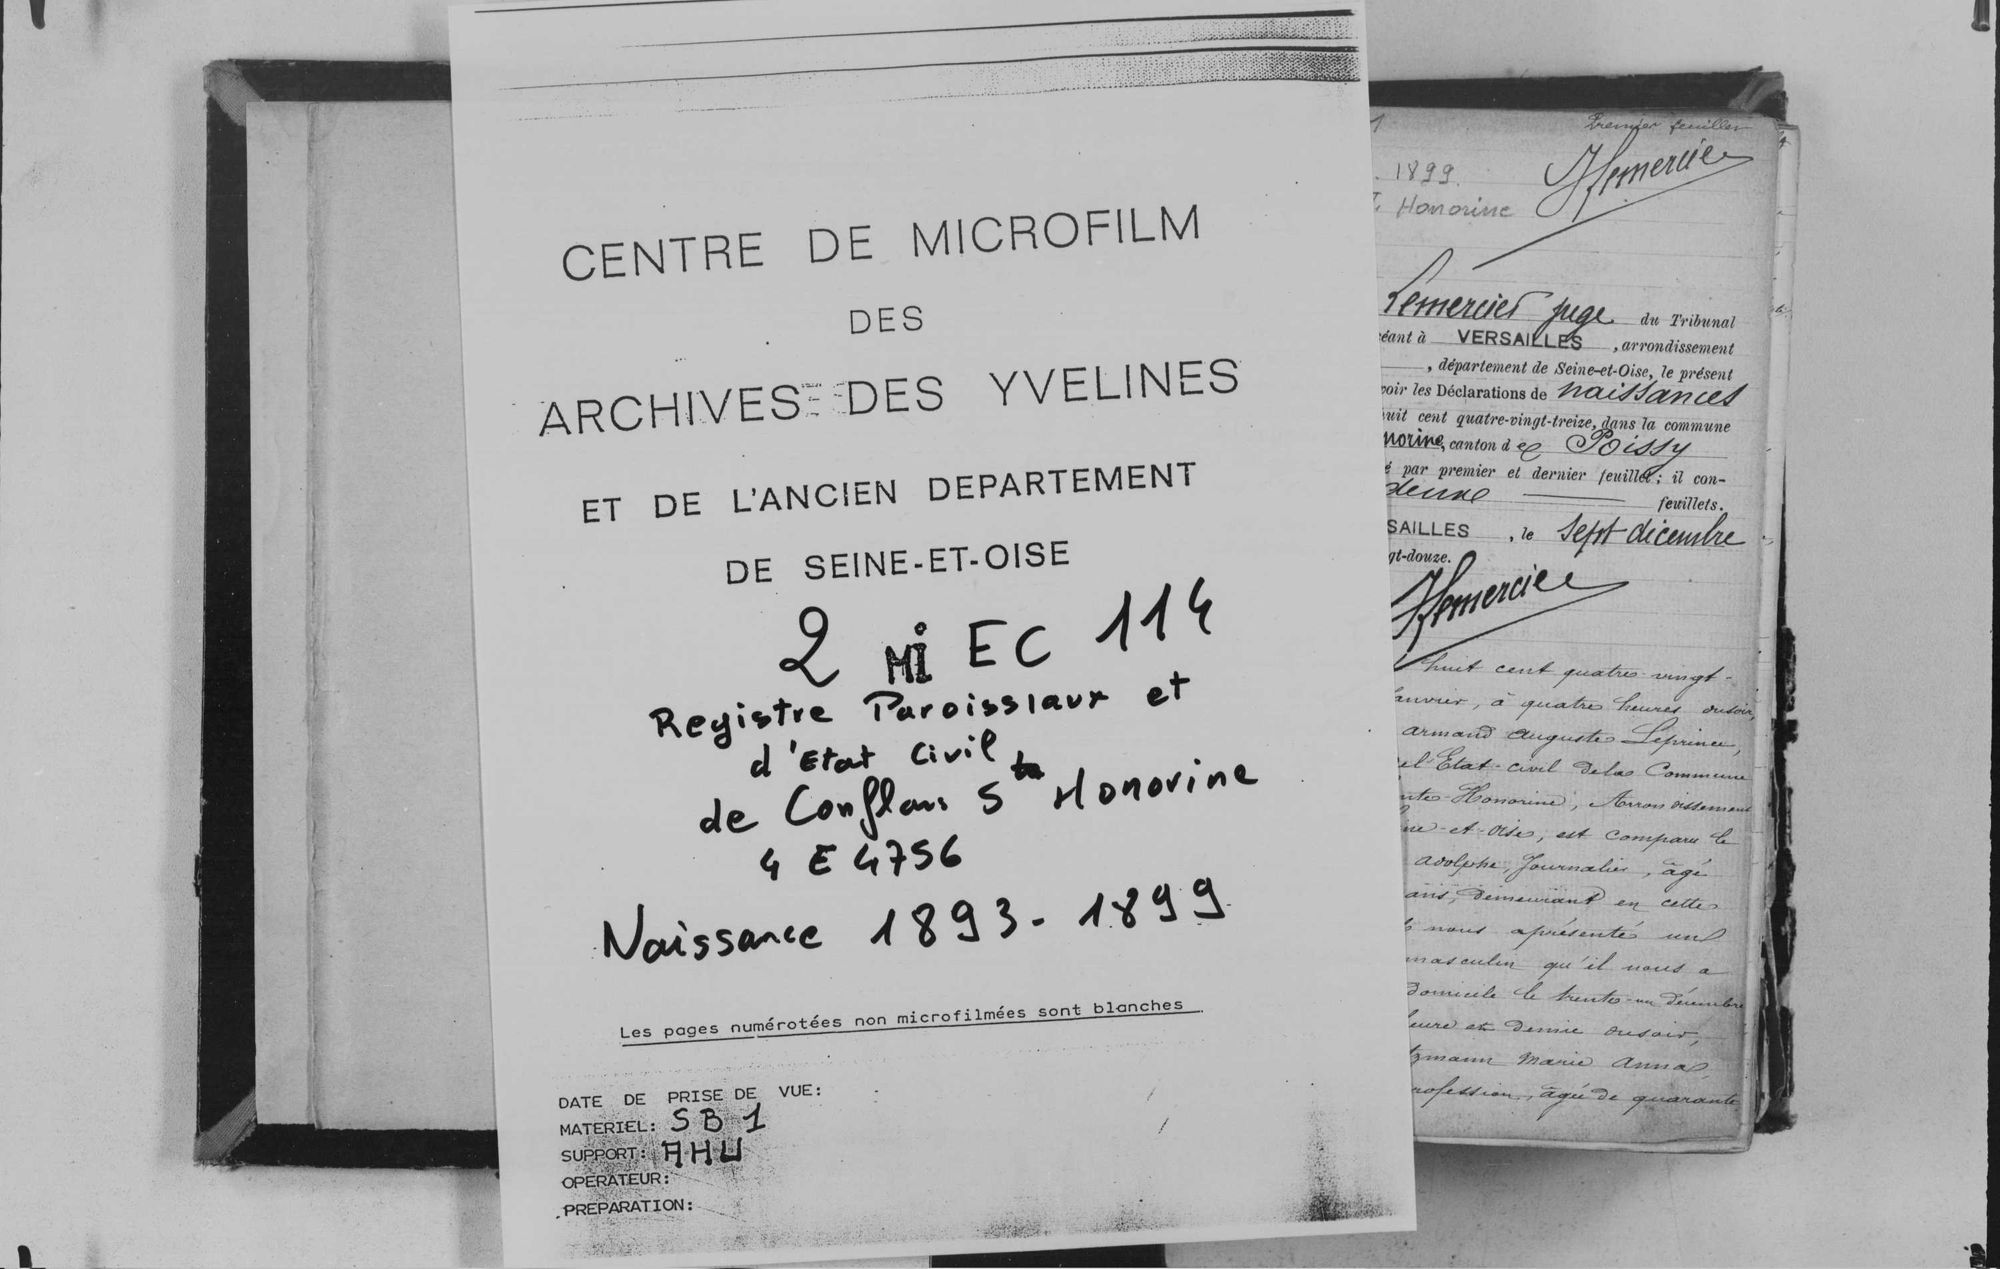 CENTRE DE MICROFILM
DES
ARCHIVES DES YVELINES
ET DE L'ANCIEN DEPARTEMENT
DE SEINE-ET-OISE
2 Mi EC 114
Registre Paroissiaux et
d'Etat Civil
de Conflans Ste Honorine
4 E 4756
Naissance 1893-1899
Les pages numérotées non microfilmées sont blanches
DATE DE PRISE DE VUE:
MATERIEL: SB1
SUPPORT: AHU
OPERATEUR:
PREPARATION:
1 Premier feuillet
1899. Lemercier
Honorine
Lemercier juge du Tribunal
éant à VERSAILLES, arrondissement
, département de Seine-et-Oise, le présent
voir les Déclarations de naissances
huit cent quatre-vingt-treize, dans la commune
norine, canton de Poissy
é par premier et dernier feuillet; il con-
deux feuillets.
SAILLES, le sept décembre
gt-douze.
Lemercier
huit cent quatre vingt-
anvier, à quatre heures du soir,
armand auguste Leprince,
el'Etat-civil de la Commune
nte-Honorine, Arrondissement
ine-et-Oise, est comparu le
adolphe, Journalier, âgé
ans, demeurant en cette
nous a présenté un
masculin qu'il nous a
domicile le trente-un décembre
eure et demie du soir,
tzmann Marie Anna,
rofession, âgée de quarante